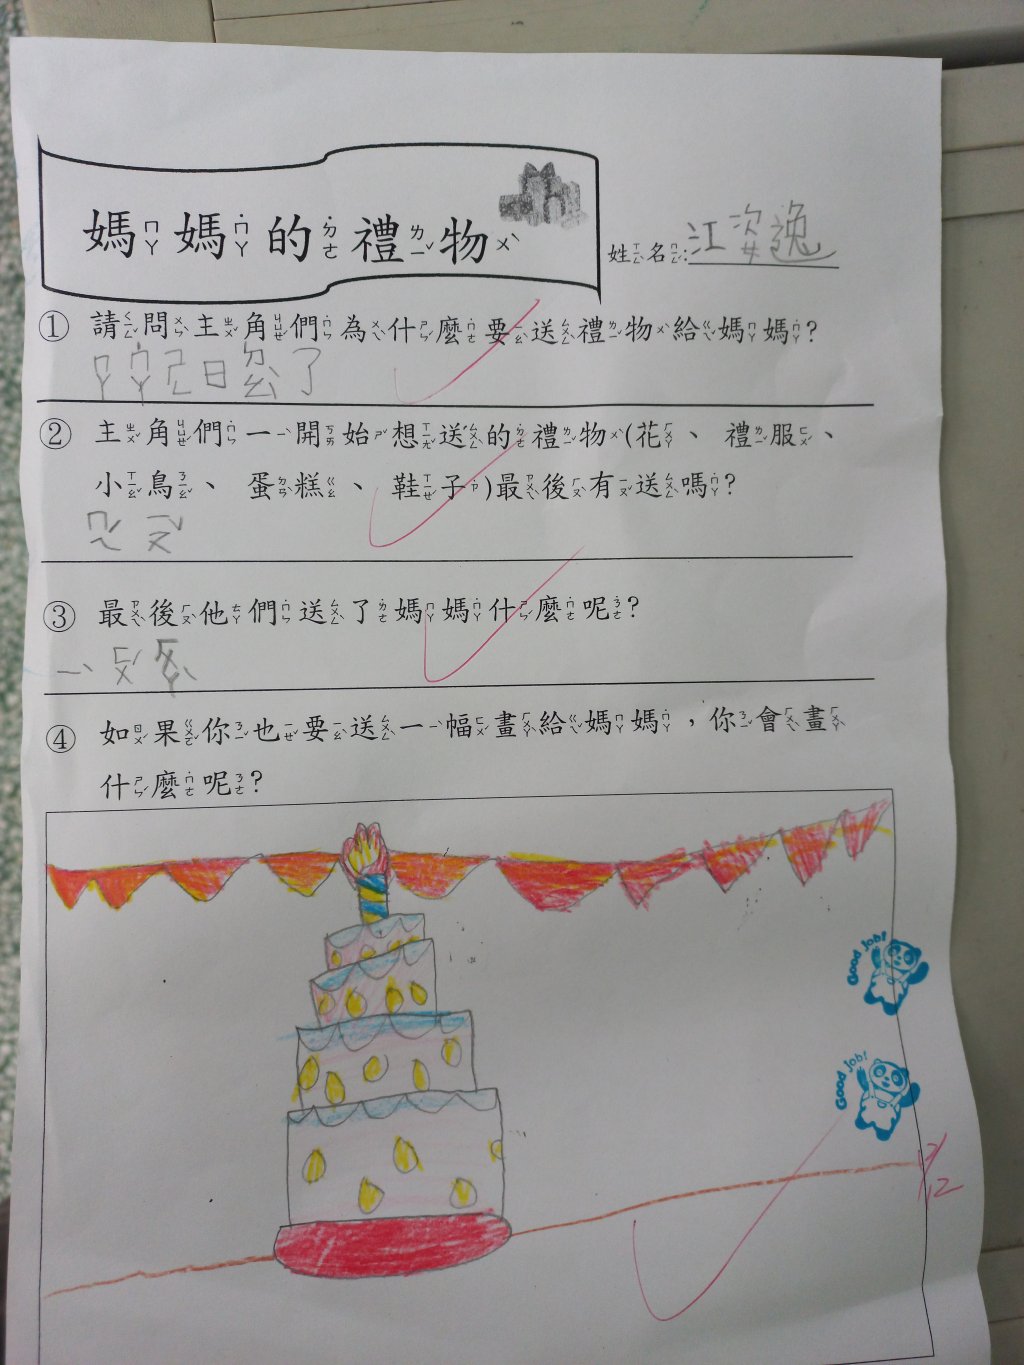 媽ㄇㄚ媽˙ㄇㄚ的˙ㄉㄜ禮ㄌㄧˇ物ㄨˋ
姓ㄒㄧㄥˋ名ㄇㄧㄥˊ:江姿逸
①請ㄑㄧㄥˇ問ㄨㄣˋ主ㄓㄨˇ角ㄐㄩㄝˊ們˙ㄇㄣ為ㄨㄟˋ什ㄕㄣˊ麼˙ㄇㄜ要ㄧㄠˋ送ㄙㄨㄥˋ禮ㄌㄧˇ物ㄨˋ給ㄍㄟˇ媽ㄇㄚ媽˙ㄇㄚ?
ㄇㄚ˙ㄇㄚㄕㄥ日ㄉㄠˋ了
②主ㄓㄨˇ角ㄐㄩㄝˊ們˙ㄇㄣ一ㄧˋ開ㄎㄞ始ㄕˇ想ㄒㄧㄤˇ送ㄙㄨㄥˋ的˙ㄉㄜ禮ㄌㄧˇ物ㄨˋ(花ㄏㄨㄚ、禮ㄌㄧˇ服ㄈㄨˊ、
小ㄒㄧㄠˇ鳥ㄋㄧㄠˇ、蛋ㄉㄢˋ糕ㄍㄠ、鞋ㄒㄧㄝˊ子˙ㄗ)最ㄗㄨㄟˋ後ㄏㄡˋ有ㄧㄡˇ送ㄙㄨㄥˋ嗎˙ㄇㄚ?
ㄇㄟˊㄧㄡˇ
③最ㄗㄨㄟˋ後ㄏㄡˋ他ㄊㄚ們˙ㄇㄣ送ㄙㄨㄥˋ了˙ㄌㄜ媽ㄇㄚ媽˙ㄇㄚ什ㄕㄣˊ麼˙ㄇㄜ呢˙ㄋㄜ?
ㄧˋㄈㄨˊㄏㄨㄚˋ
④如ㄖㄨˊ果ㄍㄨㄛˇ你ㄋㄧˇ也ㄧㄝˇ要ㄧㄠˋ送ㄙㄨㄥˋ一ㄧˋ幅ㄈㄨˊ畫ㄏㄨㄚˋ給ㄍㄟˇ媽ㄇㄚ媽˙ㄇㄚ，你ㄋㄧˇ會ㄏㄨㄟˋ畫ㄏㄨㄚˋ
什ㄕㄣˊ麼˙ㄇㄜ呢˙ㄋㄜ?
Good Job!
Good Job!